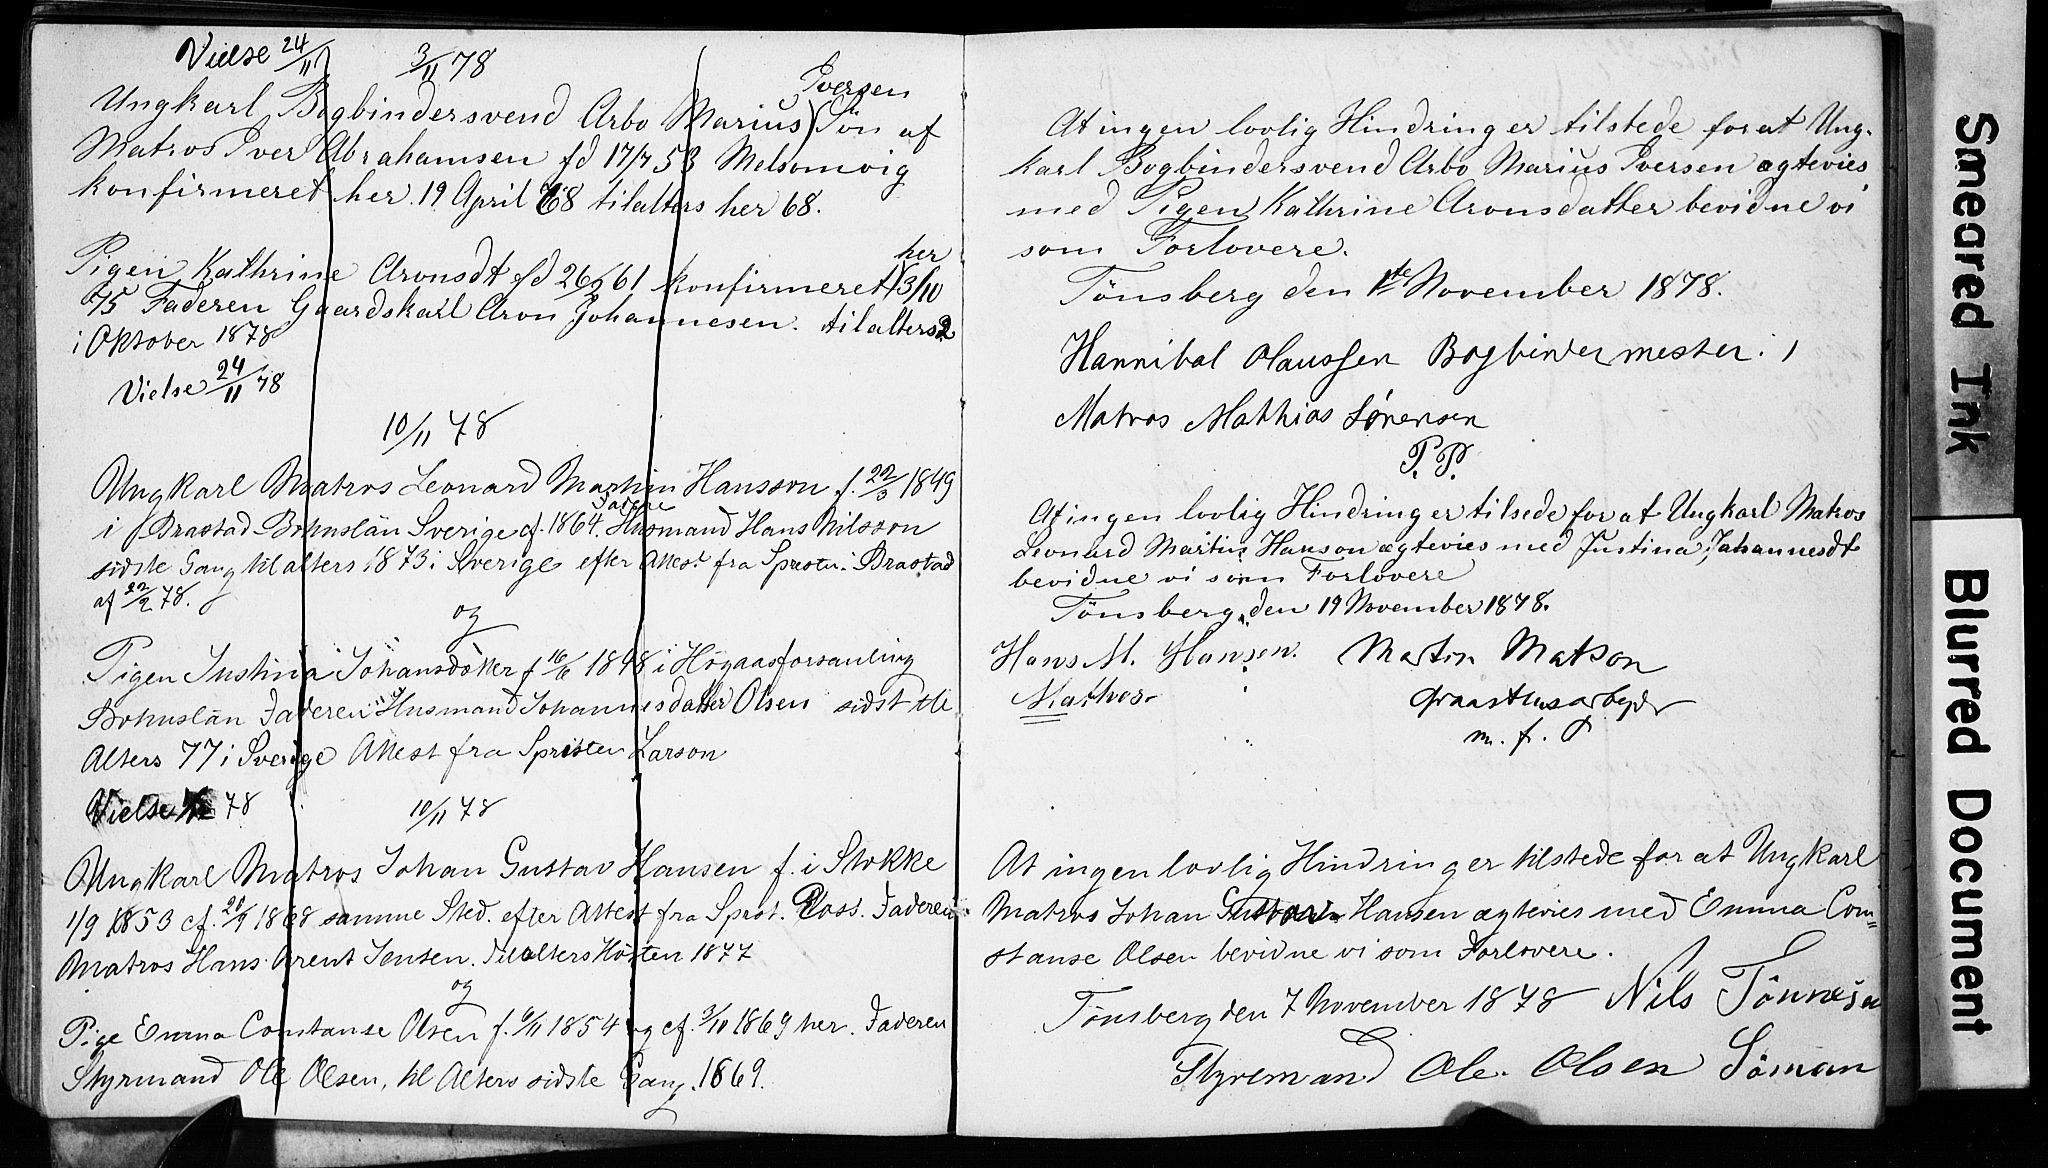 Vielse 24/11 3/11 78
Iversen
Ungkarl Bogbindersvend Arbo Marius) Søn af
Matros Iver Abrahamsen fd 17/7 53 Melsomvig
konfirmeret her 19 April 68 tilalters her 68.
her
Pigen Kathrine Aronsdt fd 26/9 61 konfirmeret 3/10
75 Faderen Gaardskarl Aron Johannesen. tilalters
i Oktober 1878
Vielse 24/11 78
10/11 78
Ungkarl Matros Leonard Martin Hansson f. 22/3 1849
Faderen
i Brastad Bohuslän Sverige cf. 1864. Husmand Hans Nilsson
sidste Gang til alters 1873 i Sverige efter Attest fra Sprstn. Brastad
af 22/2 78.
og
Pigen Justina Johansdotter f 16/6 1848 i Hogaasforsamling
Bohuslän Faderen Husmand Johannesdatter Olsen sidst til
Alters 77 i Sverige Attest fra Sprster Larson
Vielse 78 10/11 78
Ungkarl Matros Johan Gustav Hansen f. i Stokke
1/9 1853 cf. 20/9 1868 samme Sted. efter Attest fra Sprst. Poss. Faderen
Matros Hans Arent Jensen. Til alters Høsten 1877
og
Pige Emma Constanse Olsen f. 6/11 1854 og cf. 3/10 1869 her. Faderen
Styrmand Ole Olsen, til Alters sidste Gang 1869.
At ingen lovlig Hindring er tilstede for at Ung-
karl Bogbindersvend Arbo Marius Iversen ægtevies
med Pigen Kathrine Aronsdatter bevidne vi
som Forlovere.
Tönsberg den 1ste November 1878.
Hannibal Olaussen Bogbindermester i
Matros Mathias Sørensen
P. P.
At ingen lovlig Hindring er tilsede for at Ungkarl Matros
Leonard Martin Hanson ægtevies med Justina Johannesdt
bevidne vi som Forlovere
Tönsberg den 19 November 1878.
Hans M. Hansen. Martin Matson
Matros
m. f. P
At ingen lovlig Hindring er tilstede for at Ungkarl
Matros Johan Gustav Hansen ægtevies med Emma Con=
stanse Olsen bevidne vi som Forlovere.
Tønsberg den 7 November 1878 Nils Tönnesen
Styremand Ole Olsen Söman
Smeared Ink
Blurred Document